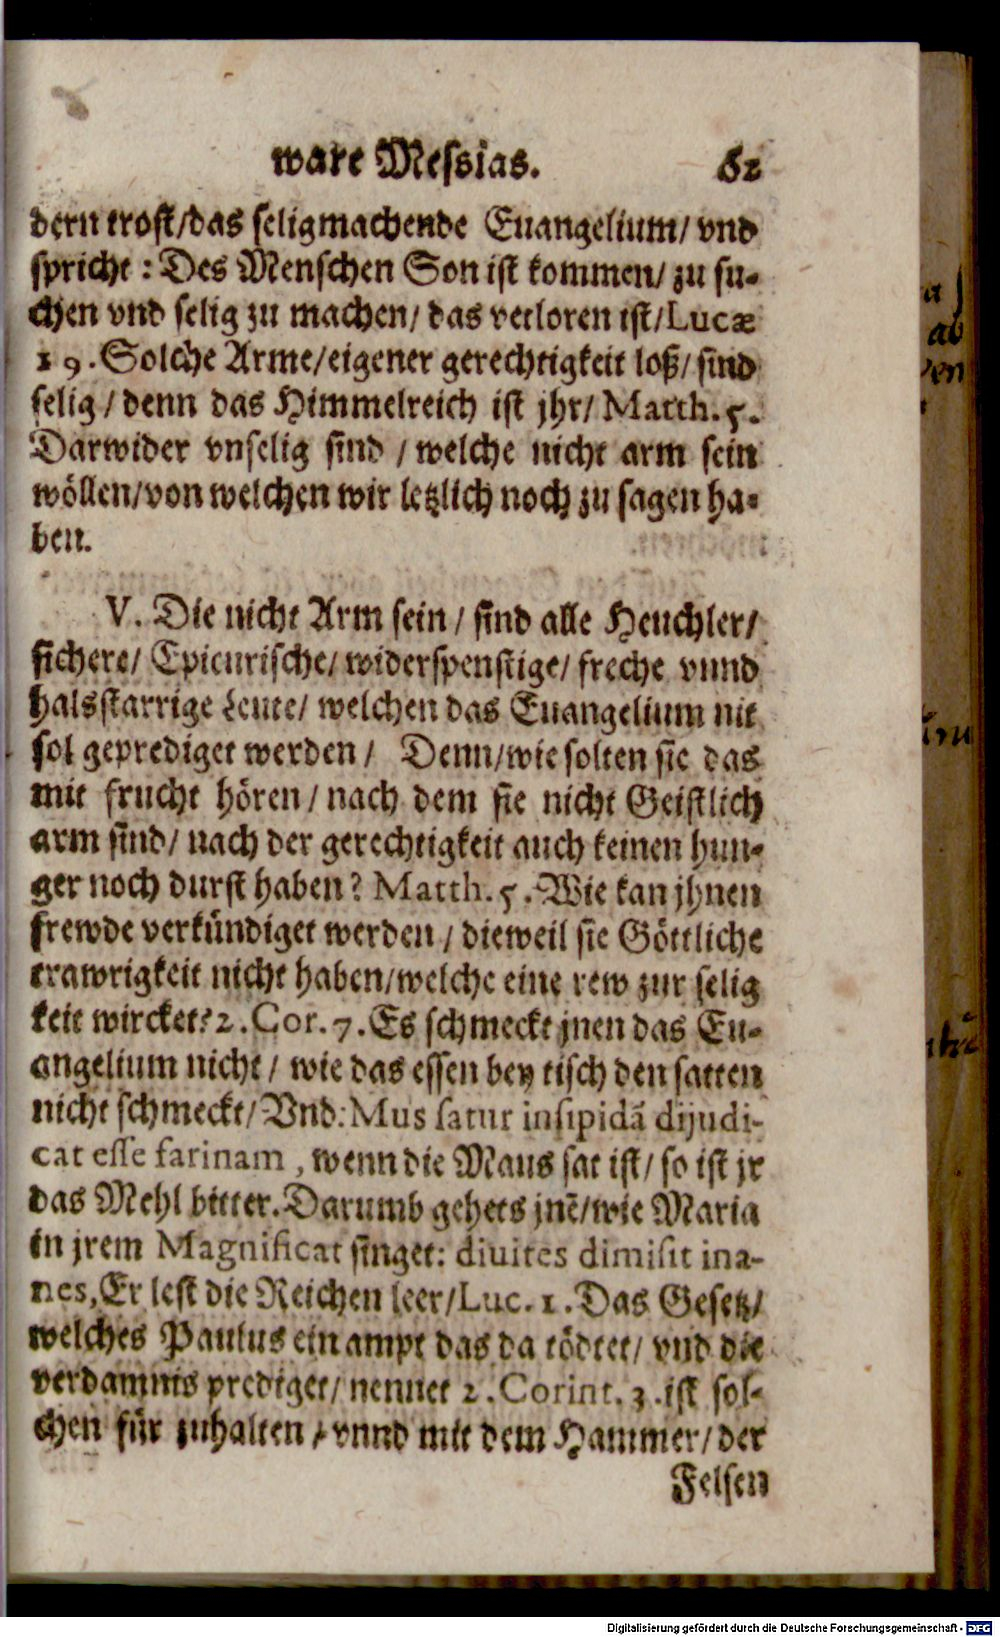 ware Messias. 62
dern trost/das seligmachende Euangelium/ vnd
spricht: Des Menschen Son ist kommen/ zu su-
chen vnd selig zu machen/ das verloren ist/Lucæ
19. Solche Arme/eigener gerechtigkeit loß/ sind
selig/ denn das Himmelreich ist jhr/ Matth. 5.
Darwider vnselig sind / welche nicht arm sein
wöllen/von welchen wir letzlich noch zu sagen ha-
ben.
V. Die nicht Arm sein / sind alle Heuchler/
sichere/ Epicurische/ widerspenstige/ freche vnnd
halsstarrige Leute/ welchen das Euangelium nit
sol geprediget werden / Denn/wie solten sie das
mit frucht hören / nach dem sie nicht Geistlich
arm sind/ nach der gerechtigkeit auch keinen hun-
ger noch durst haben? Matth. 5. Wie kan jhnen
frewde verkündiget werden / dieweil sie Göttliche
trawrigkeit nicht haben/welche eine rew zur selig
keit wircket? 2. Cor. 7. Es schmeckt jnen das Eu-
angelium nicht / wie das essen bey tisch den satten
nicht schmeckt/ Vnd: Mus satur insipidã dijudi-
cat esse farinam, wenn die Maus sat ist/ so ist jr
das Mehl bitter. Darumb gehets jnẽ/wie Maria
in jrem Magnificat singet: diuites dimisit ina-
nes, Er lest die Reichen leer/Luc. 1. Das Gesetz/
welches Paulus ein ampt das da tödtet/ vnd die
verdamnis prediget/ nennet 2. Corint. 3. ist sol-
chen für zuhalten / vnnd mit dem Hammer/ der
Felsen
Digitalisierung gefördert durch die Deutsche Forschungsgemeinschaft - DFG